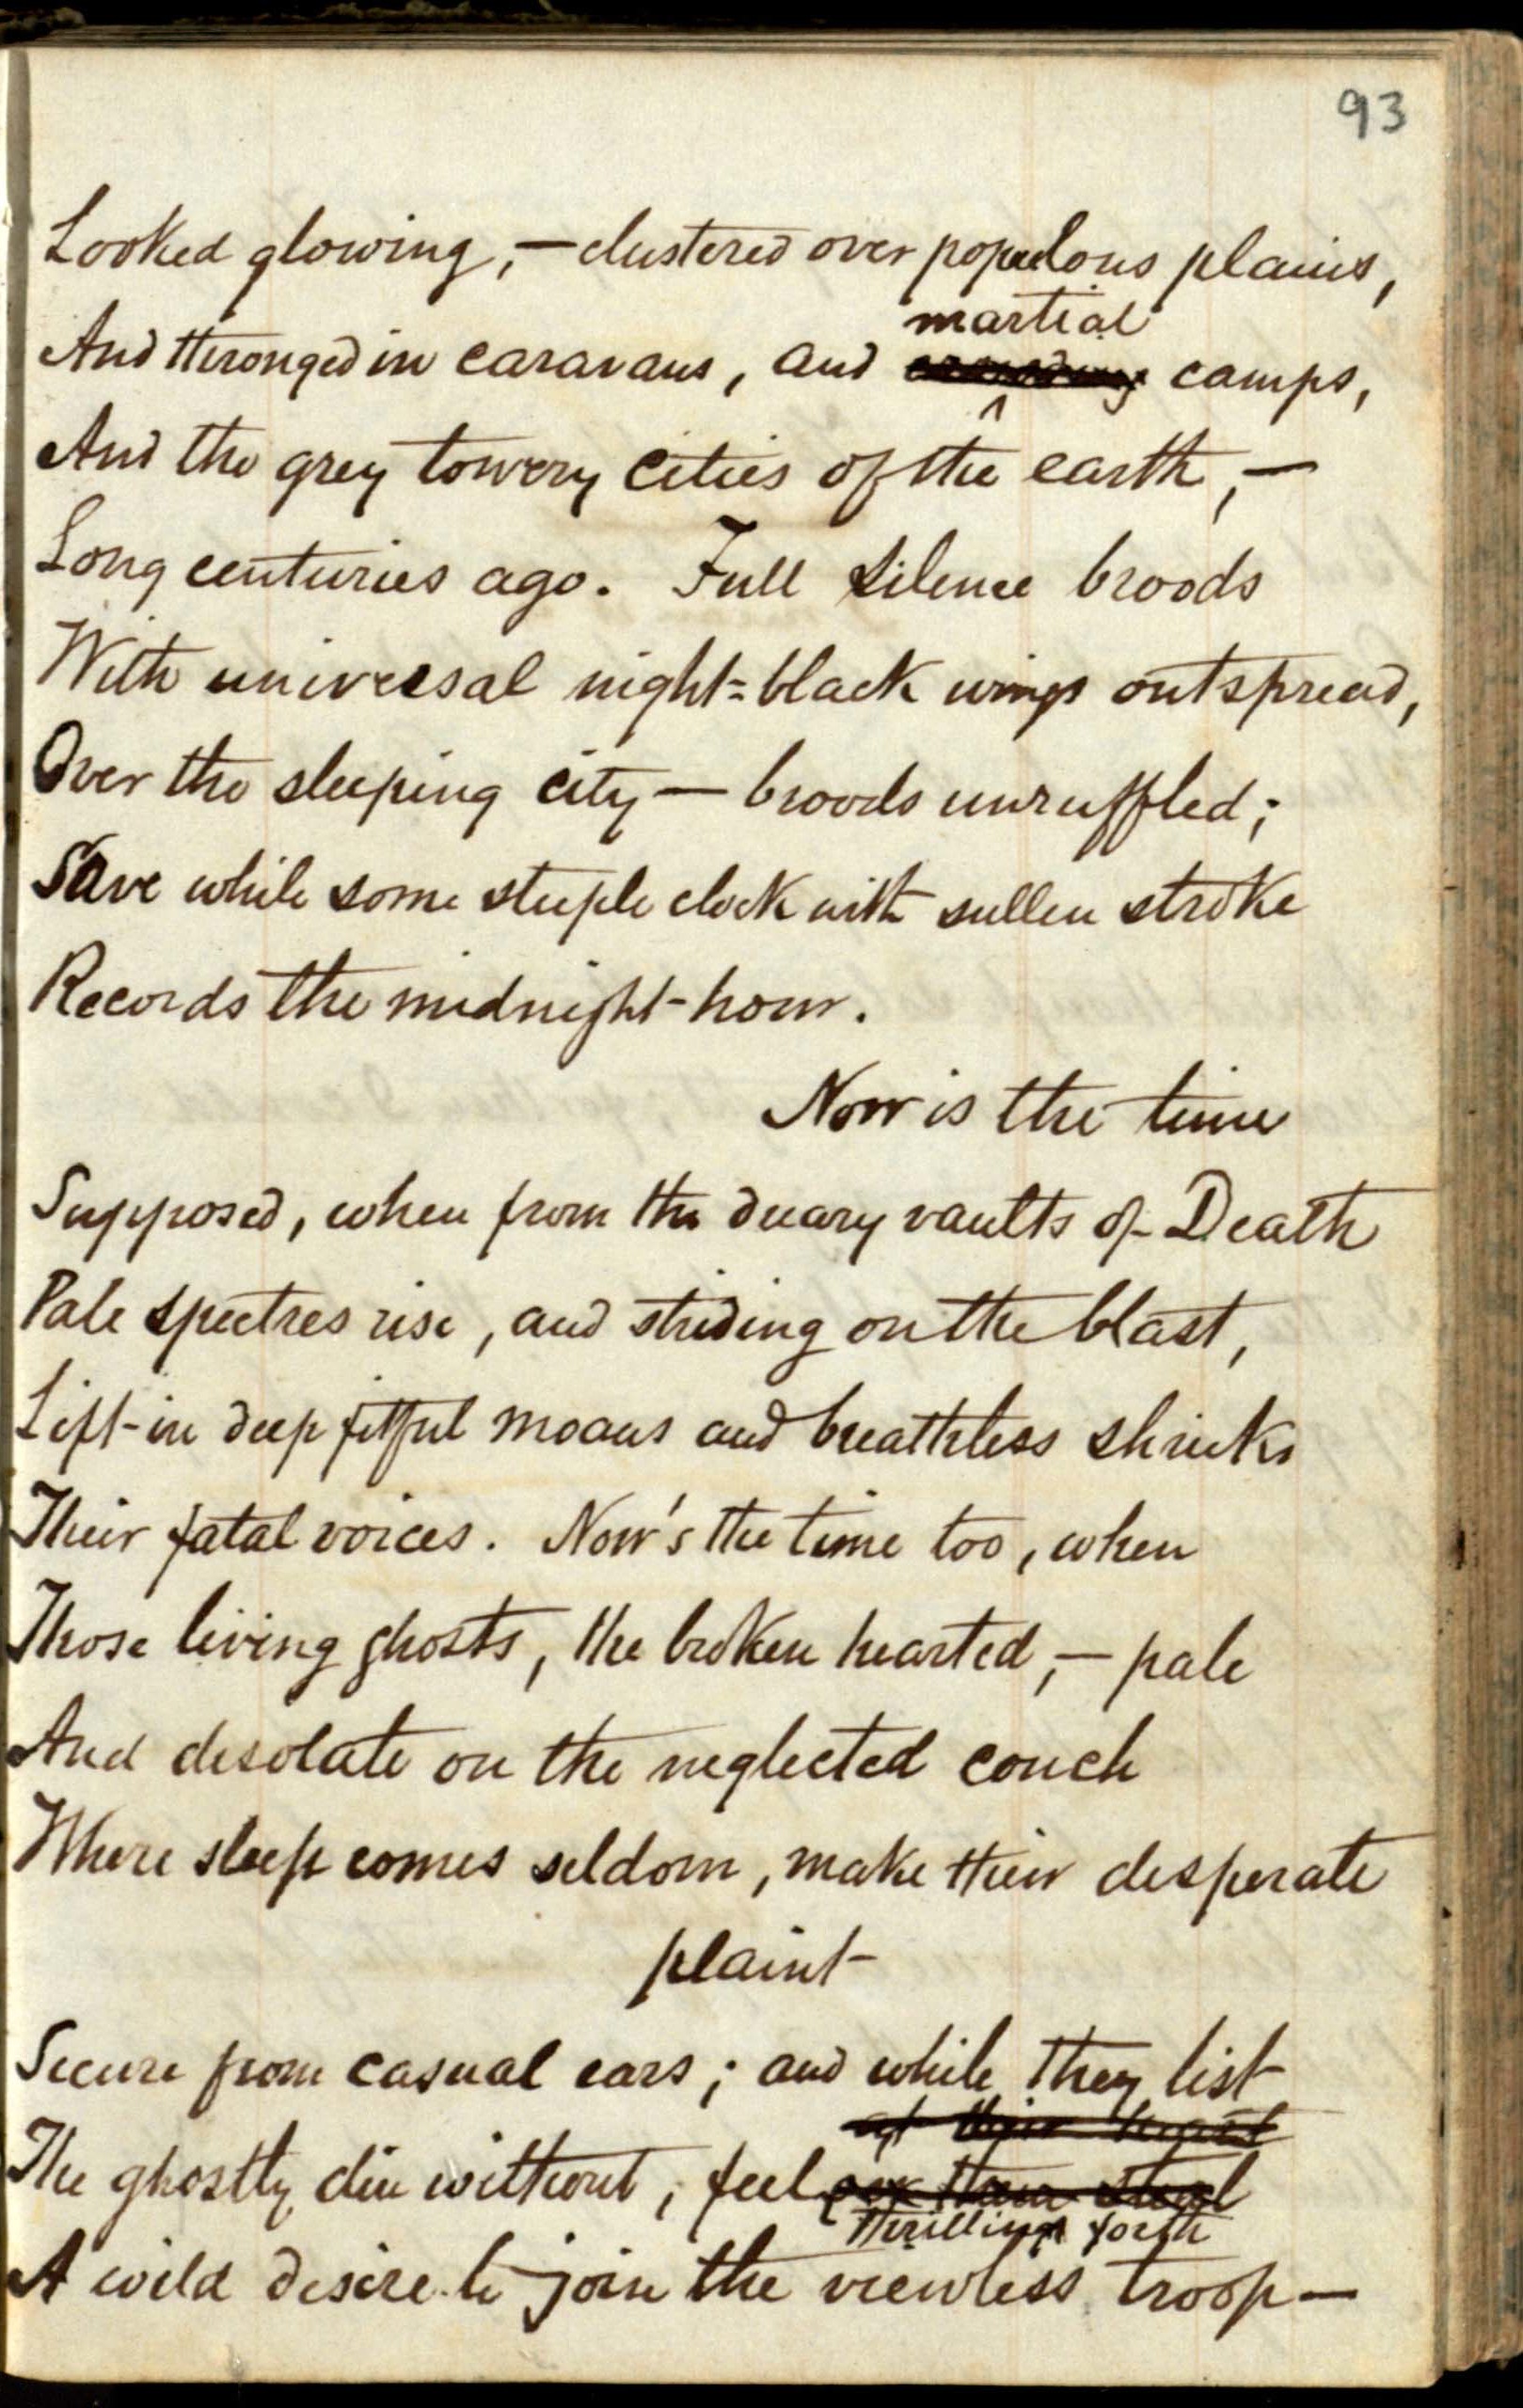 93
Looked glowing,—clustered over populous plains,
martial
And thronged in caravans, and camps,
^
And the grey towery cities of the earth,—
Long centuries ago. Full Silence broods
With universal night=black wings outspread,
Over the sleeping city — broods unruffled;
Save while some steeple clock with sullen stroke
Records the midnight-hour.
Now is the time
Supposed, when from the dreary vaults of Death
Pale spectres rise, and striding on the blast,
Lift in deep fitful moans and breathless shrieks
Their fatal voices. Now's the time too, when
Those living ghosts, the broken hearted,— pale
And desolate on the neglected couch
Where sleep comes seldom, make their desperate
plaint
Secure from casual ears; and while they list
at their heart
The ghostly din without, feel them steal
thrilling forth
A wild desire to join the viewless troop—